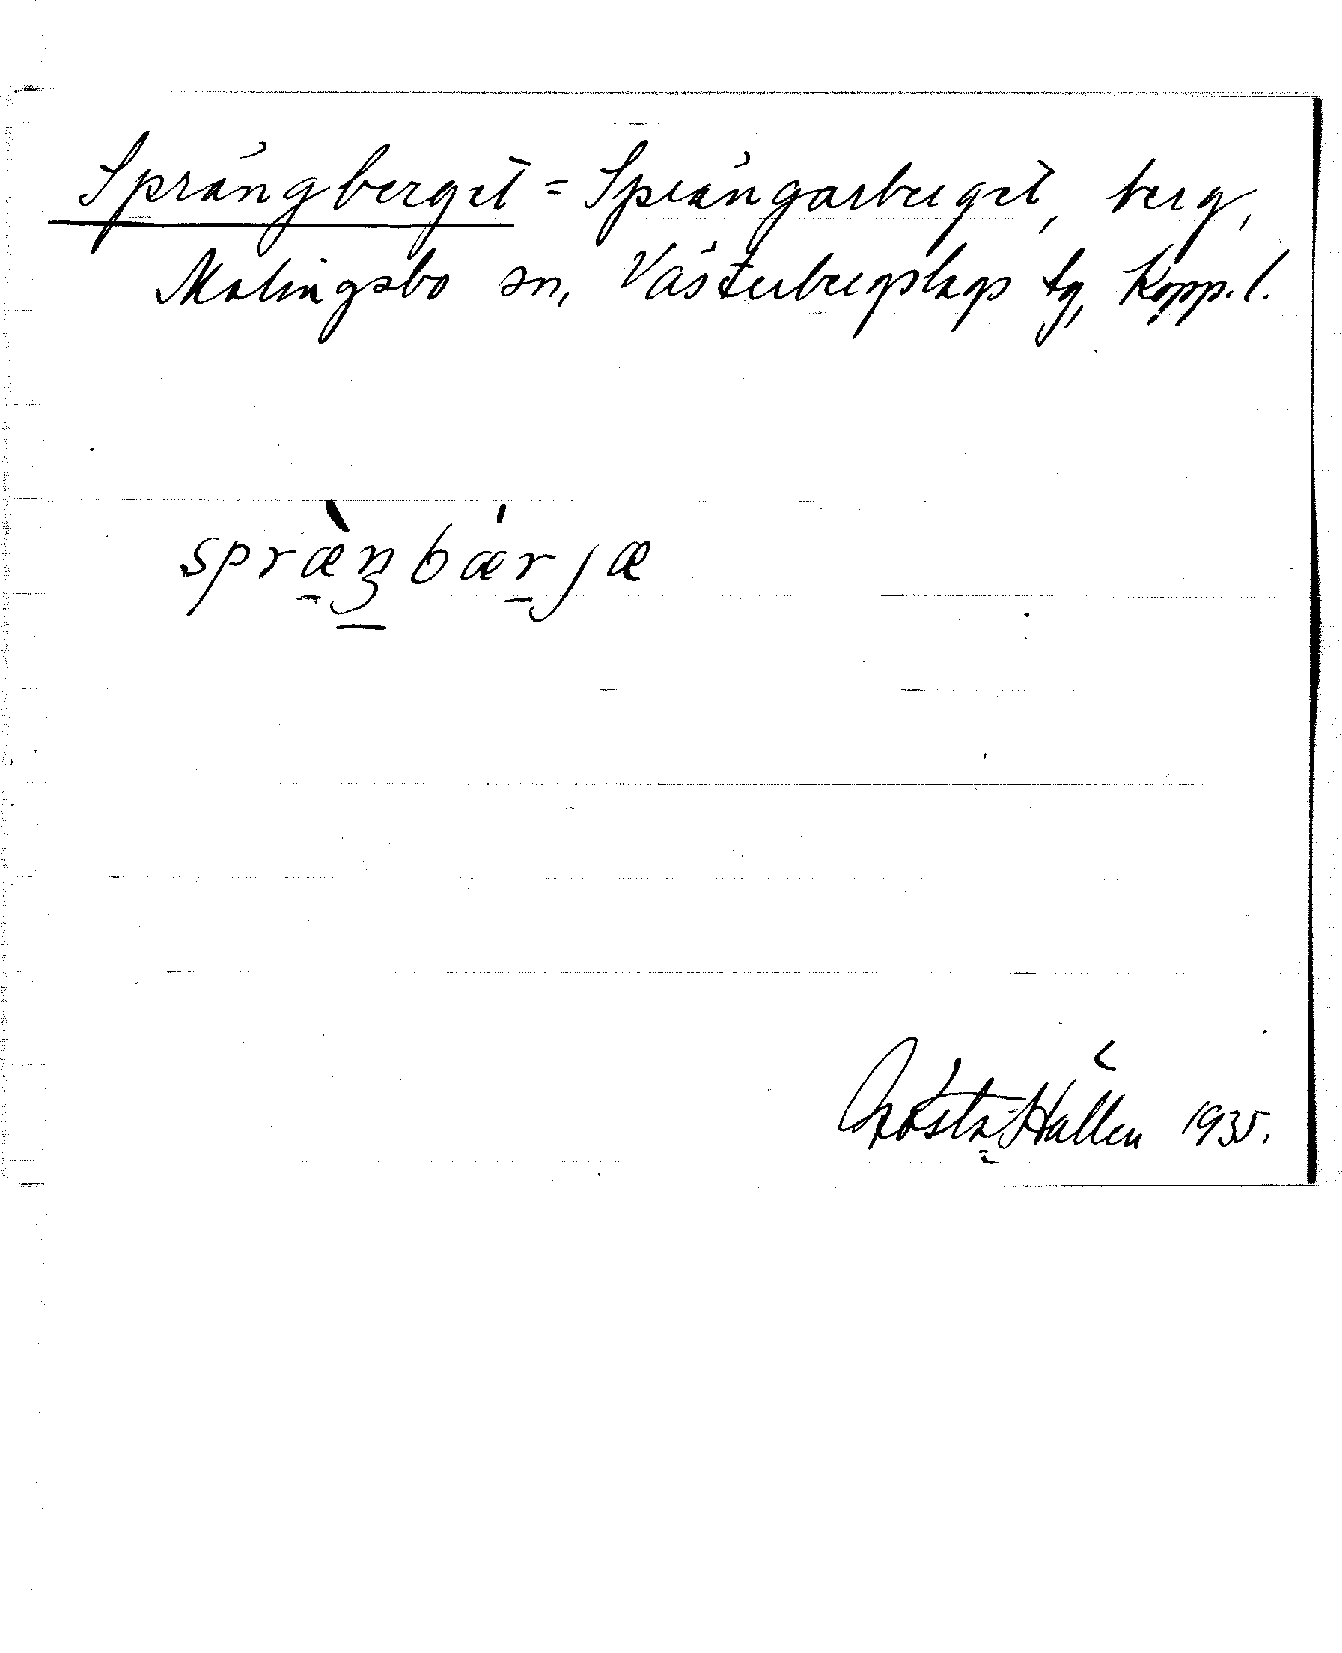 Sprängberget = Sprängarberget, berg,
Malingsbo sn, Västerbergslags tg, Kopp. l.
spræ̀ŋbæ̀rjæ
Gösta Hallén 1935.